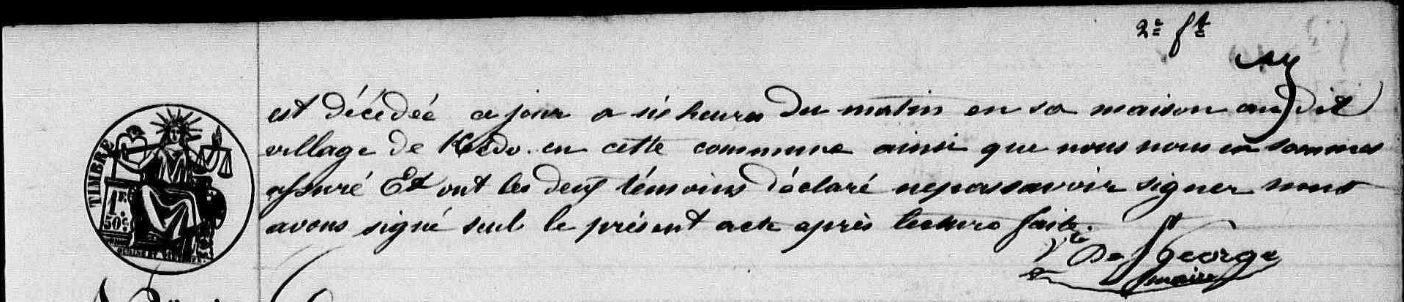 2e ft
est décédée ce jour a six heures du matin en sa maison audit
village de Kerdo en cette commune ainsi que nous nous en sommes
assuré Et ont les deux témoins déclaré ne pas savoir signer nous
avons signé seul le présent acte après lecture faite.
TIMBRE
1F.
50c.
De St George
maire